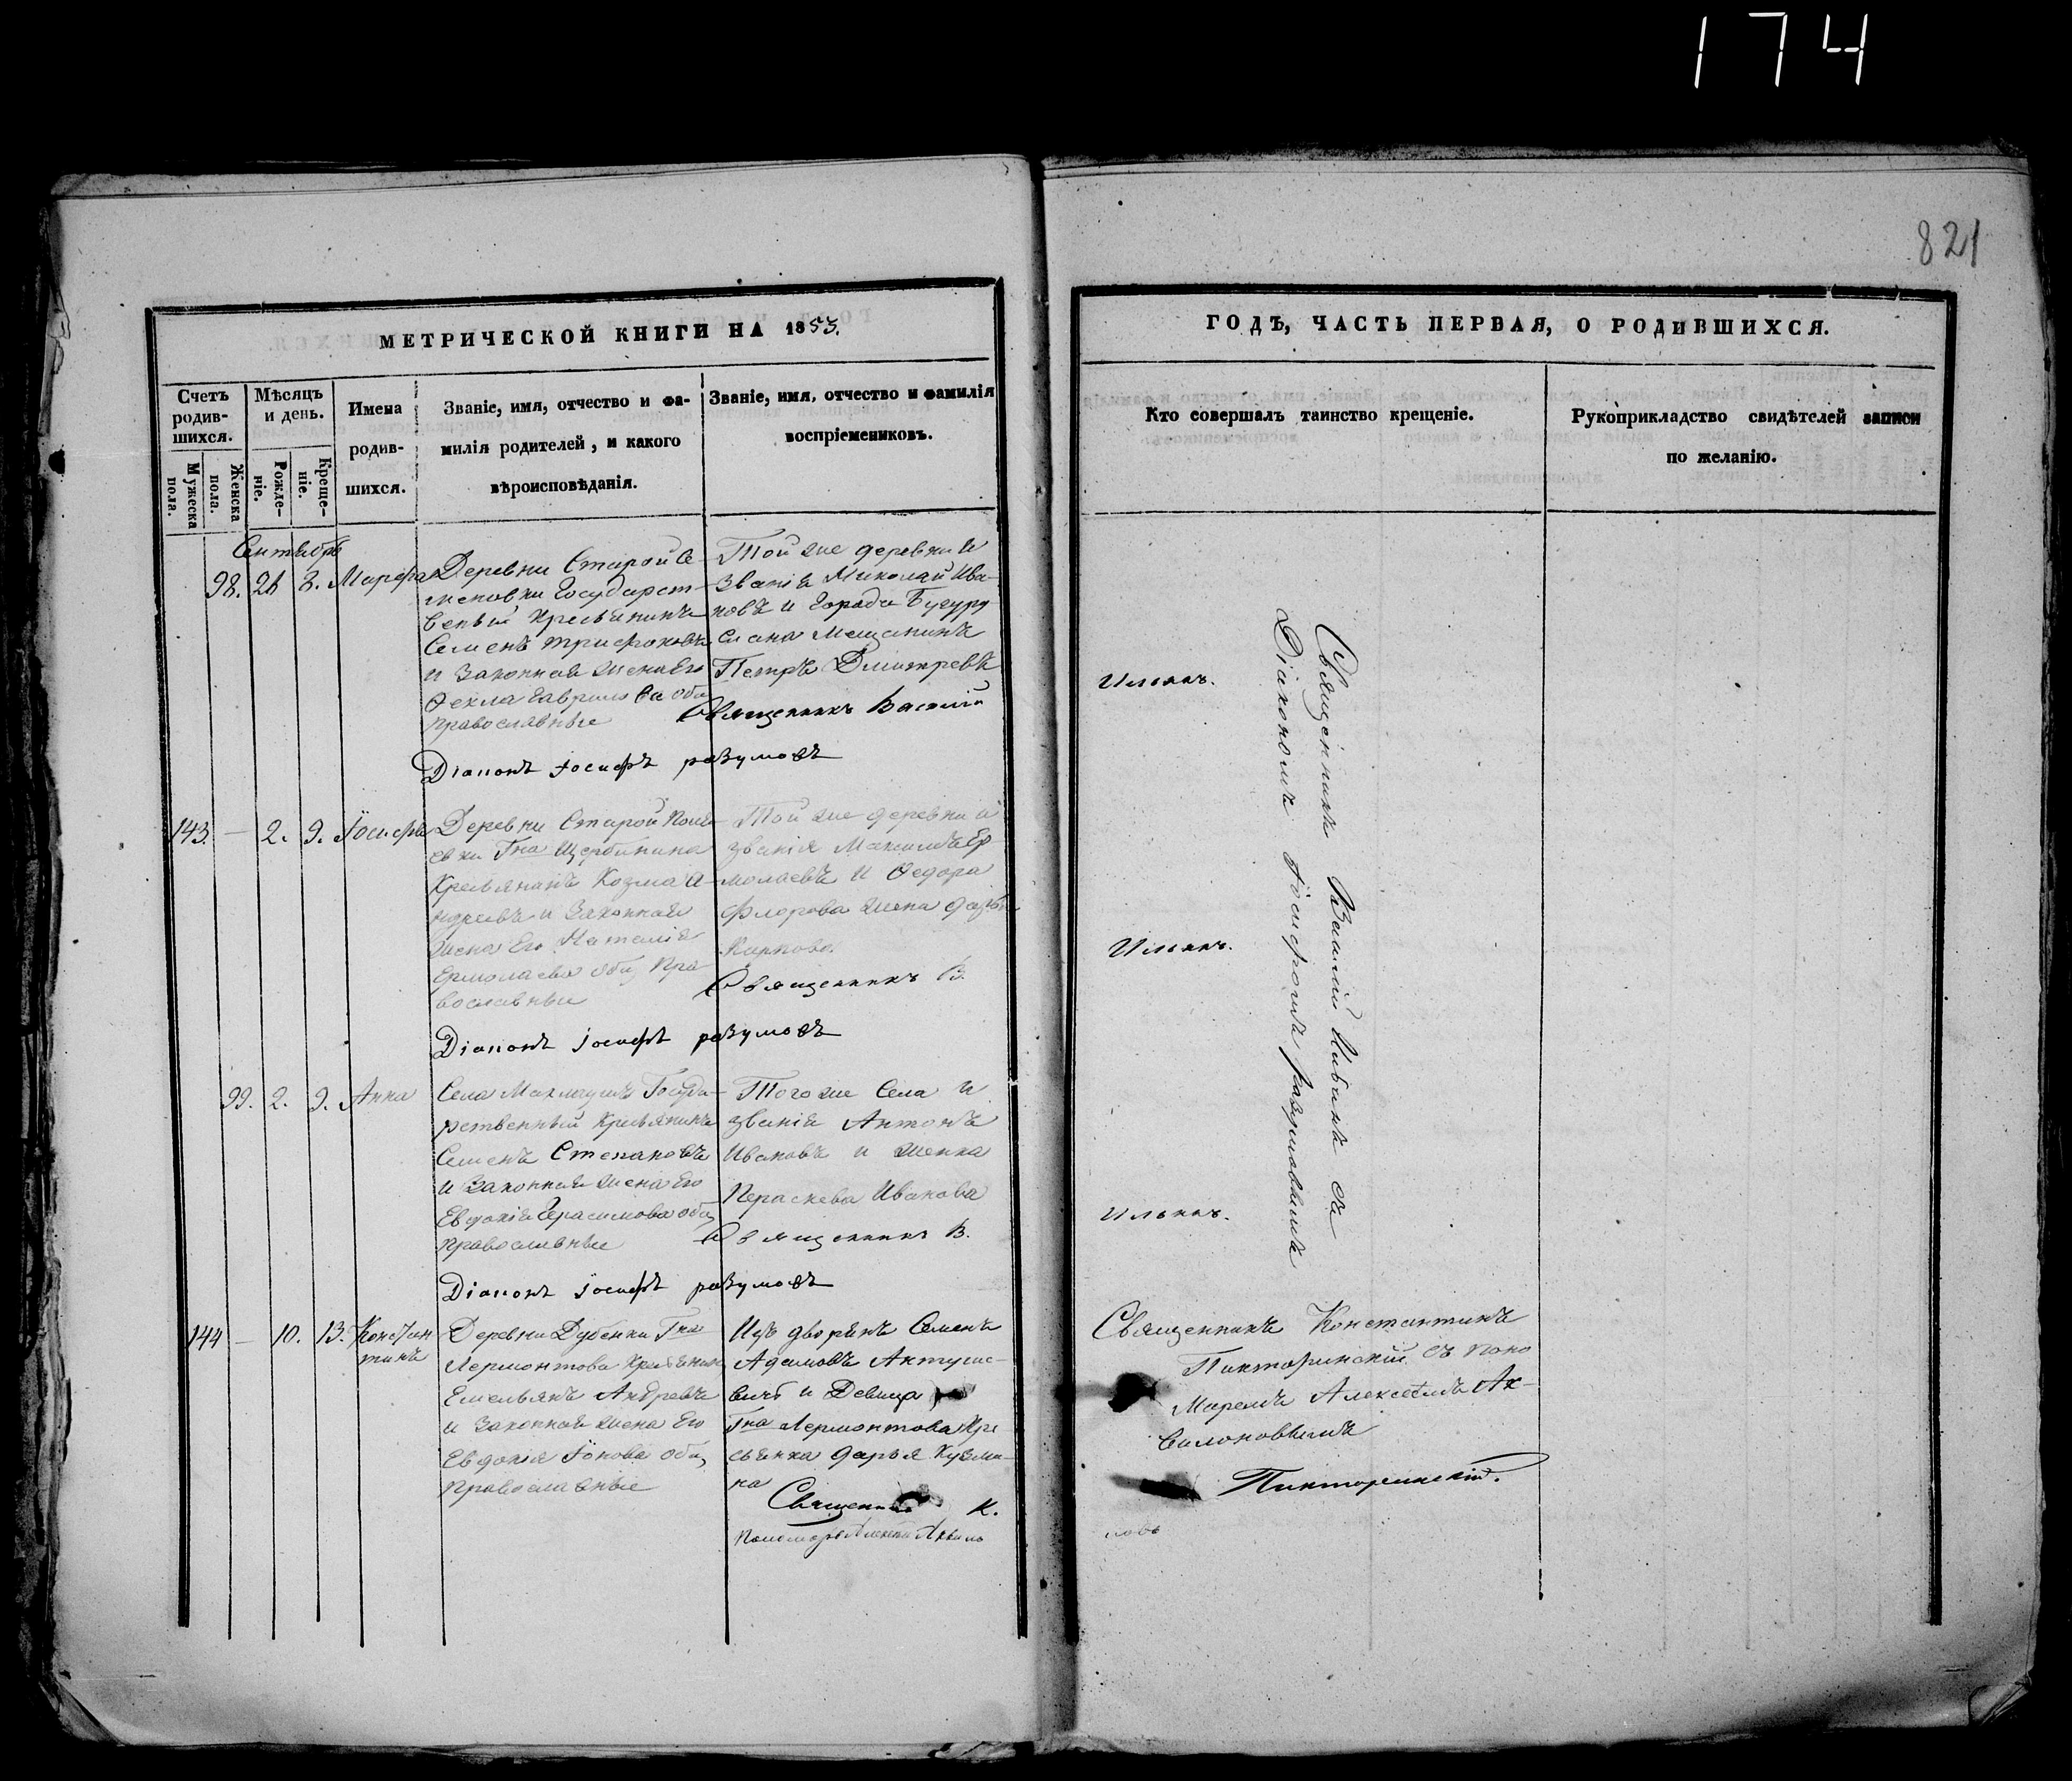 174
821
МЕТРИЧЕСКОЙ КНИГИ НА 1853.
ГОДЪ, ЧАСТЬ ПЕРВАЯ, О РОДИВШИХСЯ.
Счетъ родив-шихся.
Мужеска пола.
Женска пола.
Мѣсяцъ и день.
Рожде-ніе.
Креще-ніе.
Имена родив-шихся.
Званіе, имя, отчество и фа-
милія родителей, и какого
вѣроисповѣданія.
Званіе, имя, отчество и фамилія
воспріемениковъ.
Кто совершалъ таинство крещеніе.
Рукоприкладство свидѣтелей записи
по желанію.
Сентябрь
98. 3. Марфа
Деревни Старой Се-
меновки Государст-
венный Крестьянинъ
Семенъ Трифоновъ
и Законная жена Его
Фекла Гаврилова оба
православные
Той же деревни и
званія Николай Ива-
новъ и Города Бугуру
слана Мещанинъ
Петръ Дмитревъ
Священникъ Василій
Діаконъ Іосифъ разумовъ
143. — 2. 9. Іосифъ
Деревни Старой
Гна Щербинина
Крестьянинъ Козма А-
ндреевъ и Законная
жена Его Наталія
Ермолаева оба Пра
вославные
Той же деревни и
званія Максимъ Ер
молаевъ и Федора
Флорова жена
Карпова.
Священникъ В.
Діаконъ Іосифъ разумовъ
99. 2. 9. Анна
Села Госуда-
рственный Крестьянинъ
Семенъ Степановъ
и Законная жена Его
Евдокія Герасимова оба
православные
Того же Села и
званія Антонъ
Ивановъ и женка
Пераскева Иванова
Священникъ В.
Діаконъ Іосифъ разумовъ
144 — 10. 13. Констан
тинъ
Деревни Дубенки Гна
Лермонтова Крестьянинъ
Емельянъ Андревъ
и Законная жена Его
Евдокія Іонова оба
Православные
Изъ дворянъ Семенъ
Адамовъ
и Девица
Гна Лермонтова Кре
стьянка Дарья Кузми-
на
Священникъ К.
Пономарь Алексей Аксило
Ильинъ.
Ильинъ.
Ильинъ.
Священникъ Василій Ильинъ съ
Діакономъ Іосифомъ разумовымъ
Священникъ Константинъ
Пикторинскій съ Поно
Маремъ Алексѣемъ Ак-
силоновымъ
Пикторинскій.
новъ